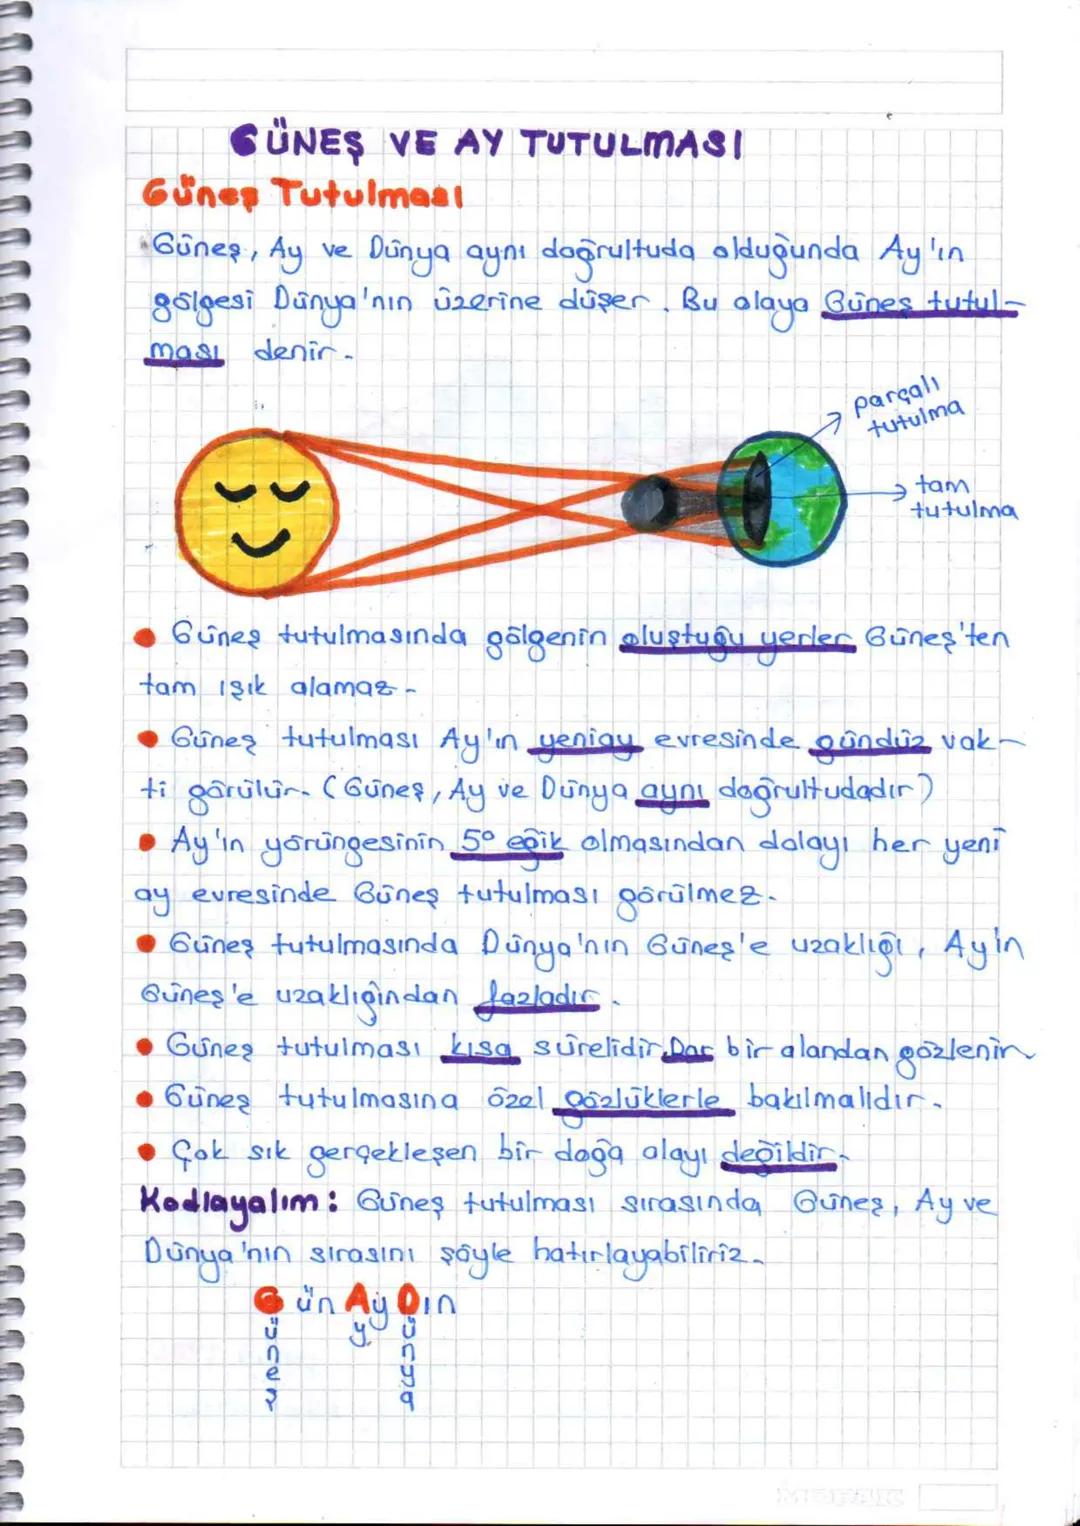 GÜNEŞ VE AY TUTULMASI
Güneş Tutulması
Güneş, Ay ve Dünya aynı doğrultuda olduğunda Ay'ın
gölgesi Dünya'nın üzerine düşer. Bu olaya Güneş tutul-
ması denir.
parçalı
tutulma
tam
tutulma
• Güneş tutulmasında gölgenin oluştuğu yerler Güneş'ten
tam ışık alamaz.
• Güneş tutulması Ay'ın yeniay evresinde gündüz vak-
ti görülür. (Güneş, Ay ve Dünya aynı doğrultudadır)
• Ay'ın yörüngesinin 5° eğik olmasından dolayı her yeni
ay evresinde Güneş tutulması görülmez.
• Güneş tutulmasında Dünya'nın Güneş'e uzaklığı, Ay'ın
Güneş'e uzaklığından fazladır.
• Güneş tutulması kısa sürelidir. Dar bir alandan gözlenir.
• Güneş tutulmasına özel gözlüklerle bakılmalıdır.
• Çok sık gerçekleşen bir doğa olayı değildir.
Kodlayalım: Güneş tutulması sırasında Güneş, Ay ve
Dünya'nın sırasını şöyle hatırlayabiliriz.
Gün Ay Dın
Güneş
Ay
Dünya